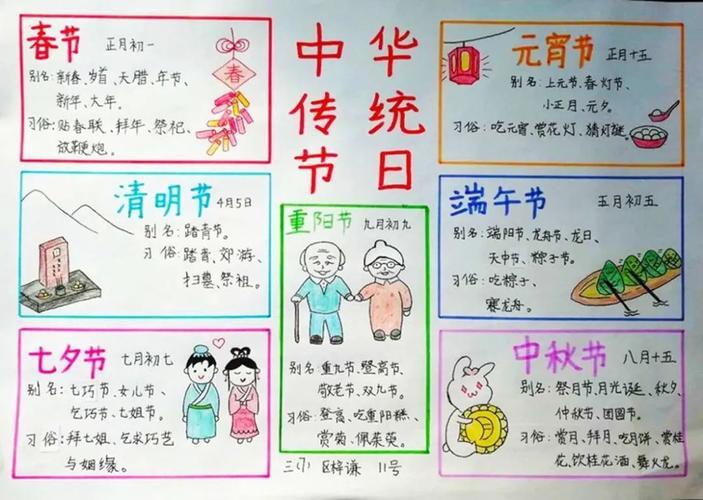 中华
传统
节日
春节 正月初一
别名：新春、岁首、大腊、年节、
新年、大年。
习俗：贴春联、拜年、祭祀、
放鞭炮。
春
元宵节 正月十五
别名：上元节、春灯节、
小正月、元夕。
习俗：吃元宵、赏花灯、猜灯谜。
清明节 4月5日
别名：踏青节。
习俗：踏青、郊游、
扫墓、祭祖。
重阳节 九月初九
别名：重九节、登高节、
敬老节、双九节。
习俗：登高、吃重阳糕、
赏菊、佩茱萸。
端午节 五月初五
别名：端阳节、龙舟节、龙日、
天中节、粽子节。
习俗：吃粽子、
赛龙舟。
七夕节 七月初七
别名：七巧节、女儿节、
乞巧节、七姐节。
习俗：拜七姐、乞求巧艺
与姻缘。
中秋节 八月十五
别名：祭月节、月光诞、秋夕、
仲秋节、团圆节。
习俗：赏月、拜月、吃月饼、赏桂
花、饮桂花酒、舞火龙。
三（7） 区梓谦 11号